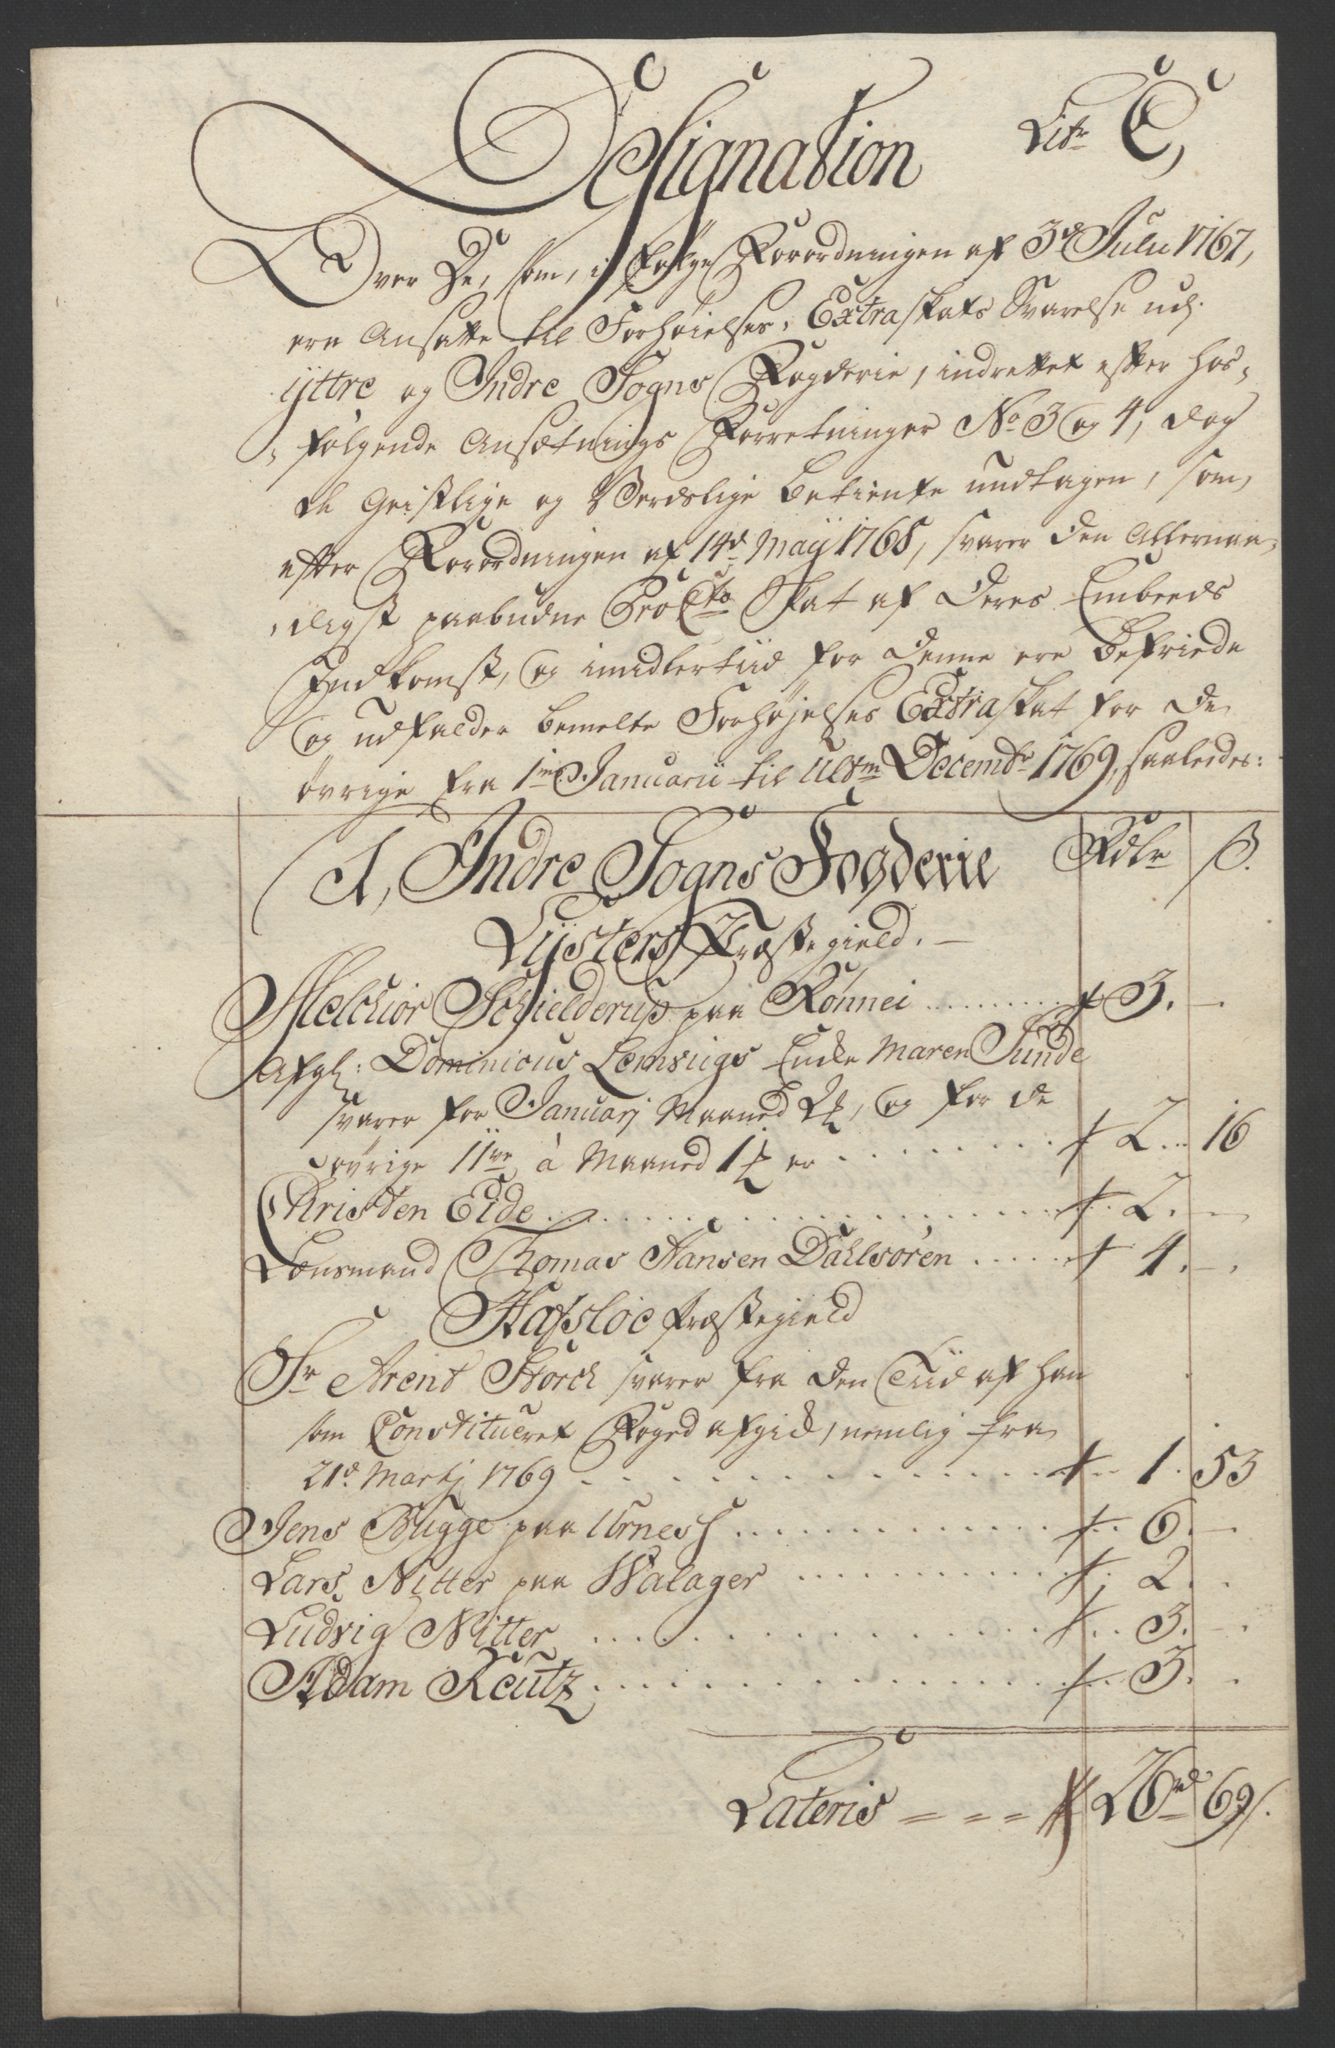 Litr C,
Designation
Over De, som, i følge Forordningen af 3d Julii 1767,
ere Ansatte til Forhøielses Extraskats Svarelse udj
ÿttre og Indre Sogns Fogderie, indrettet efter hos-
følgende Ansætnings Forretninger No 3 og 4, dog
de Geistlige og Verdslige Betiente undtagen, som,
efter Forordningen af 14d Maÿ 1768, svarer den Allernaa-
digst paabudne ProCto Skat af deres Embeeds
Indkomst, og imidlertiid for denne ere Befriede
og udfalder bemelte Forhøjelses Extraskat for De
øvrige fra 1me Januarii til Ultm Decembr 1769, saaledes:
A, Indre Sogns Fogderie Rdlr ß.
Lÿsters Præstegield.
Melchior Schielderup paa Rønnei 3. -
Afgl: Dominicus Lemvigs Enke Maren Sunde
svarer for Januarj Maaned, og for de
øvrige 11ve à Maaned 1 er 2. 16
Christen Eide 2. -
Lensmand Thomas Hansen Dahlsøren 4. -
Hafsloe Præstegield
Sr Arent Storch svarer fra den Tiid af han
som Constitueret Foged afgik, nemlig fra
21d Martj 1769 1. 53
Jens Bugge paa Urness 6. -
Lars Nitter paa Walager 2. -
Ludvig Nitter 3. -
Adam Reutz 3. -
Lateris 26rd 69ß.